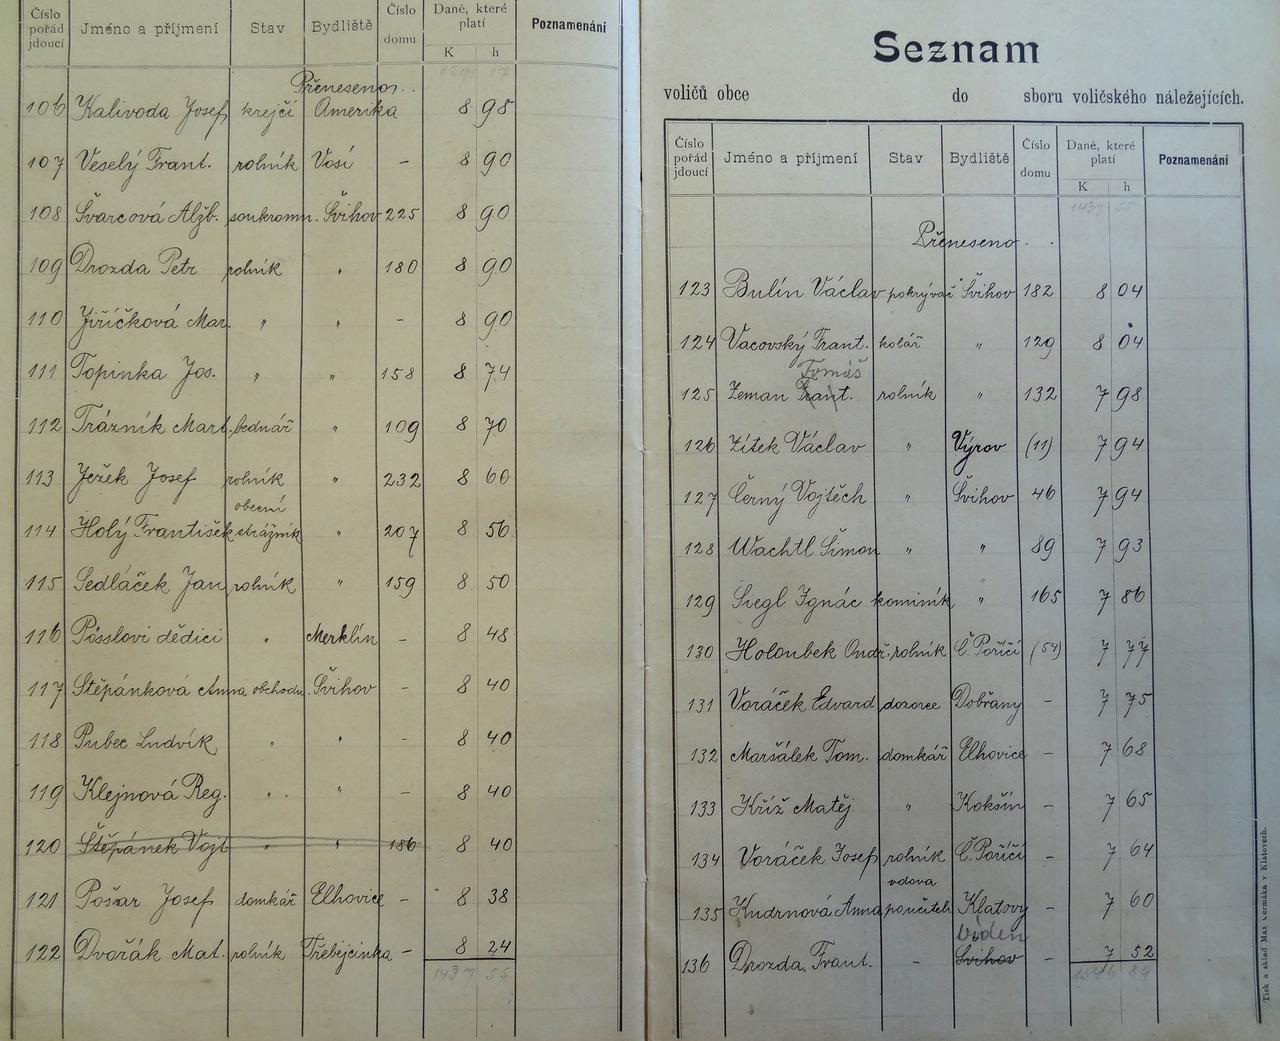 Číslo pořád jdoucí Jméno a příjmení Stav Bydliště Číslo domu Daně, které platí K h Poznamenání
1291 17
Přeneseno . .
106 Kalivoda Josef krejčí Amerika 8 98
107 Veselý Frant. rolník Vosí - 8 90
108 Švarcová Alžb. soukromn. Švihov 225 8 90
109 Drozda Petr rolník " 180 8 90
110 Jiříčková Mar. " " - 8 90
111 Topinka Jos. " " 158 8 74
112 Trázník Mart. bednář " 109 8 70
113 Ježek Josef rolník " 232 8 60
obecní
114 Holý František strážník " 207 8 56
115 Sedláček Jan rolník " 159 8 50
116 Pösslovi dědici " Merklín - 8 48
117 Štěpánková Anna obchodn. Švihov - 8 40
118 Pubec Ludvík " " - 8 40
119 Klejnová Reg. " " - 8 40
120 Štěpánek Vojt " " 186 8 40
121 Pošar Josef domkář Elhovice - 8 38
122 Dvořák Mat. rolník Třebejcinka - 8 24
1437 55
Seznam
voličů obce do sboru voličského náležejících.
Číslo pořád jdoucí Jméno a příjmení Stav Bydliště Číslo domu Daně, které platí K h Poznamenání
1437 55
Přeneseno . .
123 Bulín Václav pokrývač Švihov 182 8 04
124 Vacovský Frant. kolář " 129 8 04
Tomáš
125 Zeman Frant. rolník " 132 7 98
126 Zítek Václav " Výrov (11) 7 94
127 Černý Vojtěch " Švihov 46 7 94
128 Wachtl Šimon " " 89 7 93
129 Siegl Ignác kominík " 165 7 86
130 Holoubek Ondř. rolník Č. Poříčí (54) 7 77
131 Voráček Edvard dozorce Dobřany - 7 75
132 Maršálek Tom. domkář Elhovice - 7 68
133 Kříž Matěj " Kokšín - 7 65
134 Voráček Josef rolník Č. Poříčí - 7 64
vdova
135 Kudrnová Anna po učiteli Klatovy - 7 60
Víden
136 Drozda Frant. - Švihov - 7 52
1546 89
Tisk a sklad Max. Čermáka v Klatovech.